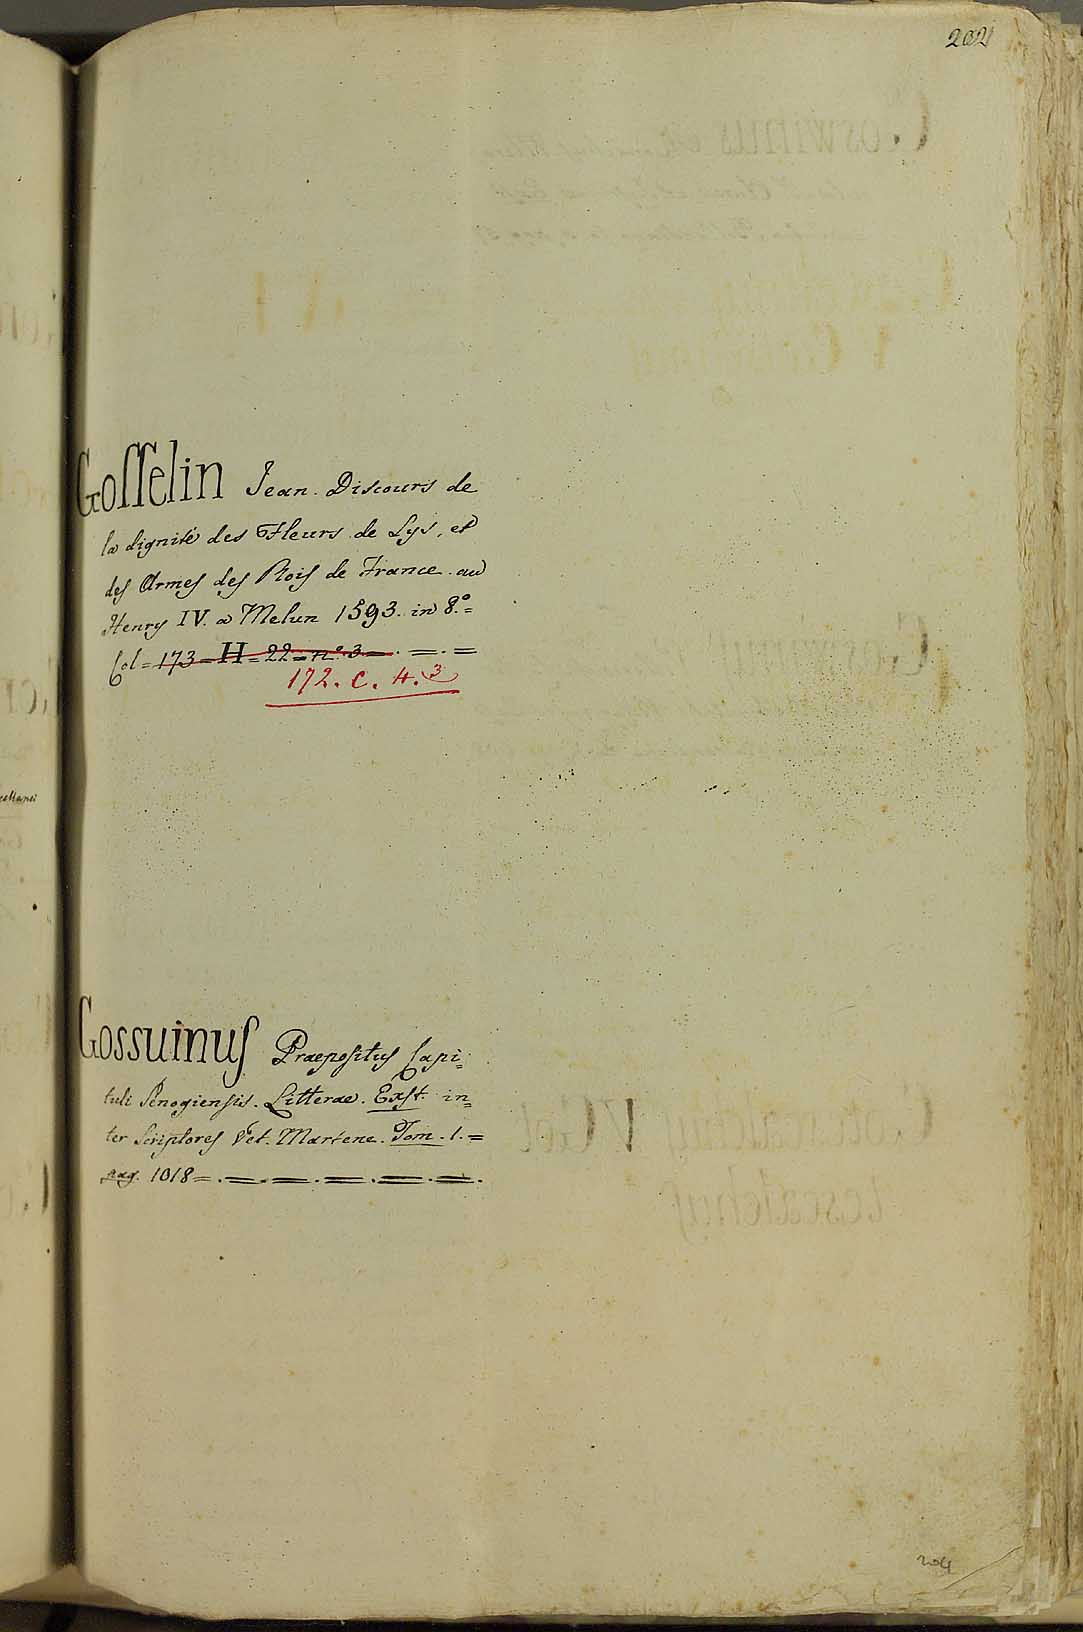 202
Gosselin Jean. Discours de
la dignité des Fleurs de Lys, et
des Armes des Rois de France. au
Henry IV. a Melun 1593. in 8.º=
Col = 173 = H = 22 = nº. 3 — . = . =
172. C. 4. 3
Gossuinus Praepositus Capi=
tuli Senogiensis. Litterae. Exst. in=
ter Scriptores Vet. Martene. Tom. 1. =
pag. 1018 =
204